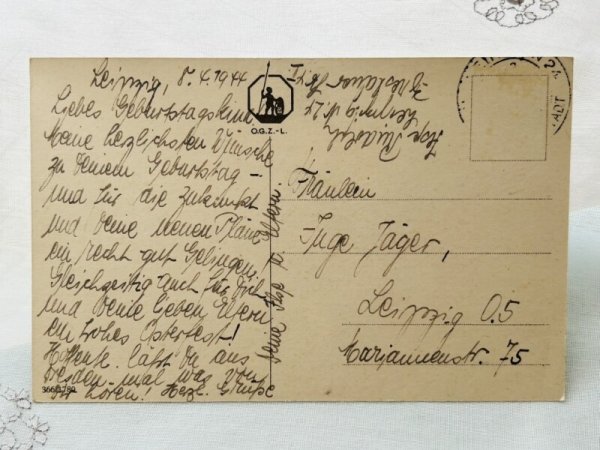 Leipzig, 8.4.1944
Liebes Geburtstagskind
Meine herzlichsten Wünsche
zu Deinem Geburtstag -
und für die Zukunft
und Deine neuen Pläne
ein recht gut Gelingen.
Gleichzeitig auch für Dich
und Deine lieben Eltern
ein frohes Osterfest!
Hoffentl. läßt Du aus
Dresden mal was von
Dir hören! Herzl. Grüße
Deine Ilse u. Eltern.
O.G.Z.-L.
Ilse Rudolph
Leipzig N 24
Fräulein
Inge Jäger,
Leipzig O.5
Mariannenstr. 75